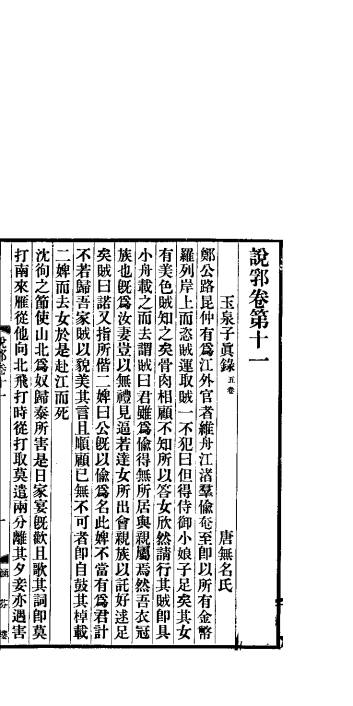 說郛卷第十一
玉泉子眞錄 五卷 唐無名氏
鄭公路昆仲有爲江外官者維舟江渚羣偸奄至即以所有金幣
羅列岸上而恣賊運取賊一不犯曰但得侍御小娘子足矣其女
有美色賊知之矣骨肉相顧不知所以答女欣然請行其賊即具
小舟載之而去謂賊曰君雖爲偸得無所居與親屬焉然吾衣冠
族也旣爲汝妻豈以無禮見逼若達女所出會親族以託好逑足
矣賊曰諾又指所偕二婢曰公旣以偸爲名此婢不當有爲君計
不若歸吾家賊以貌美其言且順顧已無不可者即自鼓其棹載
二婢而去女於是赴江而死
沈徇之節使山北爲奴歸秦所害是日家宴旣歡且歌其詞即莫
打南來雁從他向北飛打時從打取莫遣兩分離其夕妾亦遇害
說郛卷十一
一
涵芬樓